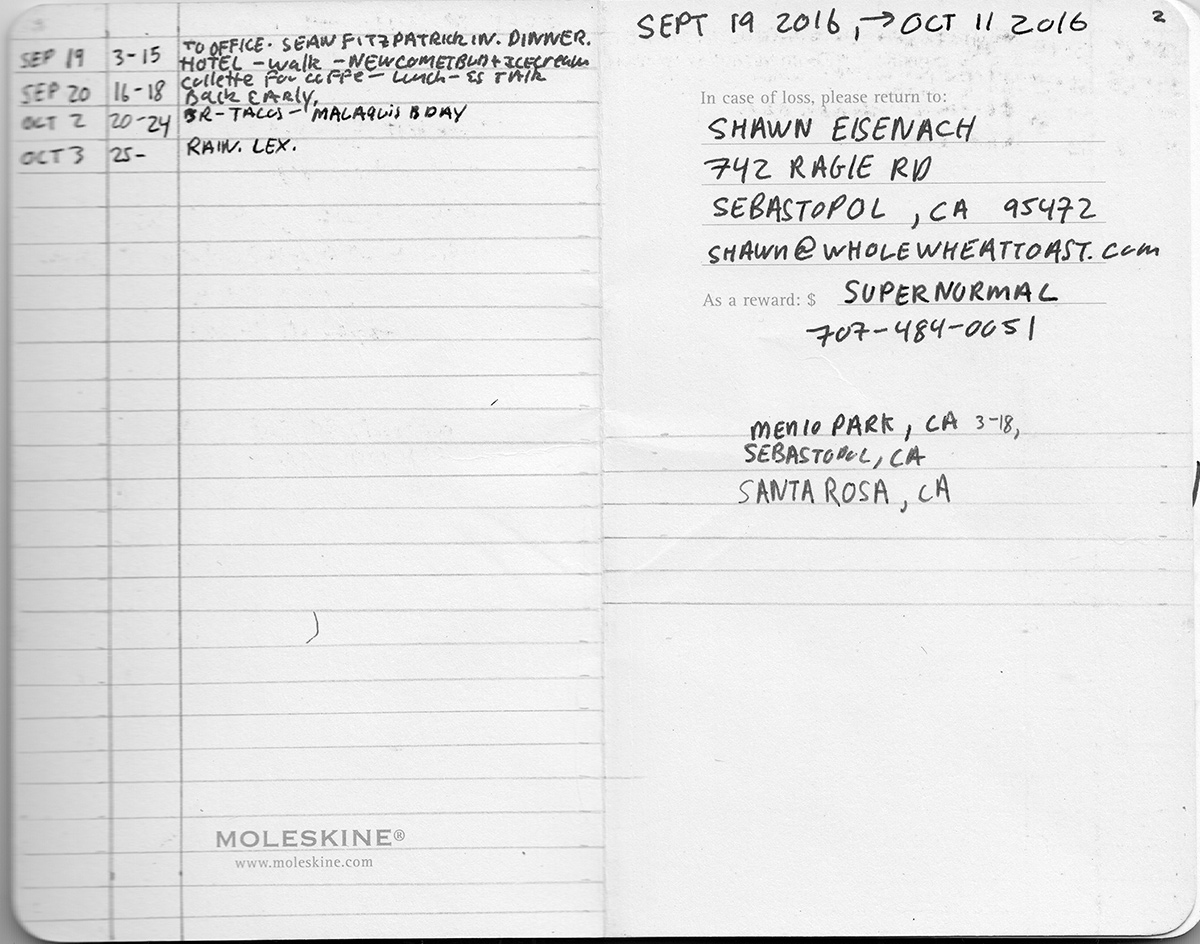 SEP 19 3-15 TO OFFICE. SEAN FITZPATRICK IN. DINNER.
HOTEL - walk - NEWCOMETBLD + ICECREAM
SEP 20 16-18 collette for coffe - Lunch - ES TALK
Back EARLY,
OCT 2 20-24 BR - TACOS - MALAQUIS BDAY
OCT 3 25- RAIN. LEX.
MOLESKINE®
www.moleskine.com
SEPT 19 2016, → OCT 11 2016 2
In case of loss, please return to:
SHAWN EISENACH
742 RAGLE RD
SEBASTOPOL, CA 95472
SHAWN@WHOLEWHEATTOAST.com
As a reward: $ SUPERNORMAL
707-484-0051
MENlO PARK, CA 3-18,
SEBASTOPOL, CA
SANTA ROSA, CA